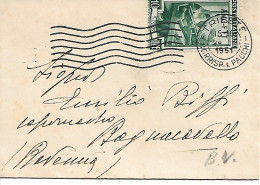 1951
CORRISP. E PACCHI
Signor
Emilio Biffi
capomastro
Bagnacavallo
(Ravenna)
B.V.